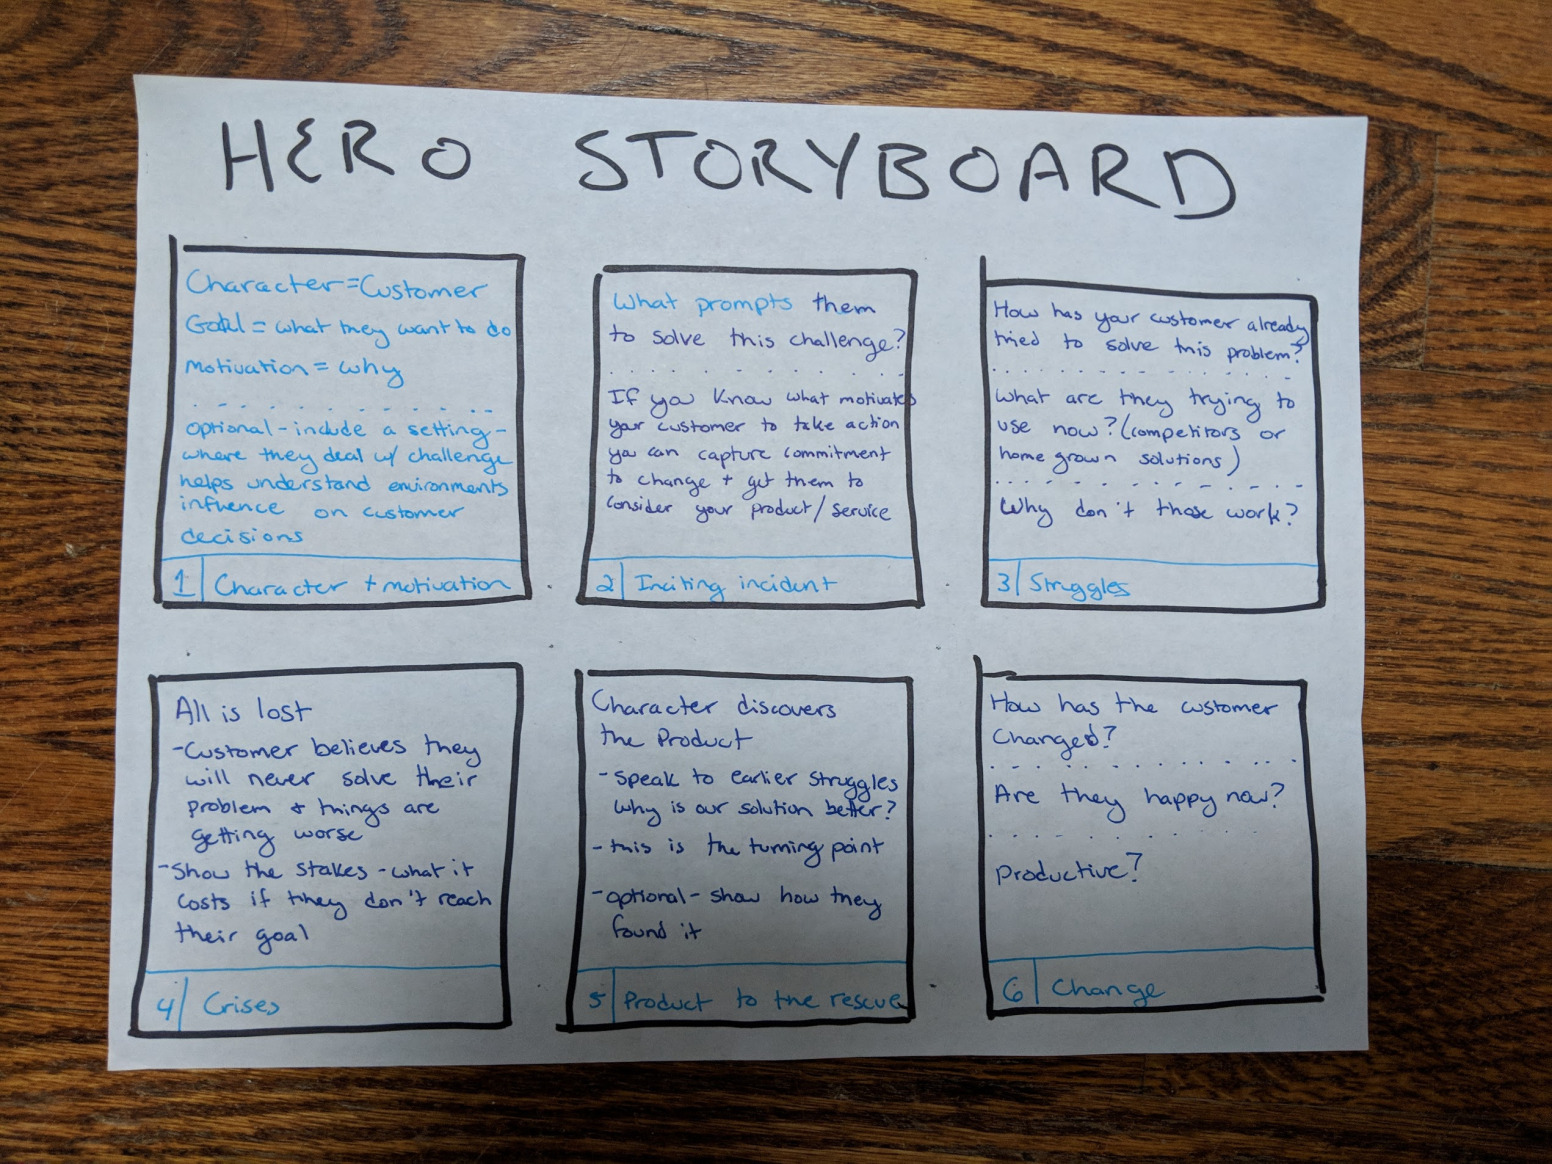 HERO STORYBOARD
Character = Customer
Goal = what they want to do
motivation = why
optional - include a setting -
where they deal w/ challenge
helps understand environments
influence on customer
decisions
1 Character + motivation
What prompts them
to solve this challenge?
If you know what motivates
your customer to take action
you can capture commitment
to change + get them to
consider your product/service
2 Inciting incident
How has your customer already
tried to solve this problem?
What are they trying to
use now? (competitors or
home grown solutions)
Why don't those work?
3 Struggles
All is lost
- Customer believes they
will never solve their
problem + things are
getting worse
- Show the stakes - what it
costs if they don't reach
their goal
4 Crises
Character discovers
the Product
- speak to earlier struggles
why is our solution better?
- this is the turning point
- optional - show how they
found it
5 Product to the rescue
How has the customer
Changed?
Are they happy now?
Productive?
6 Change